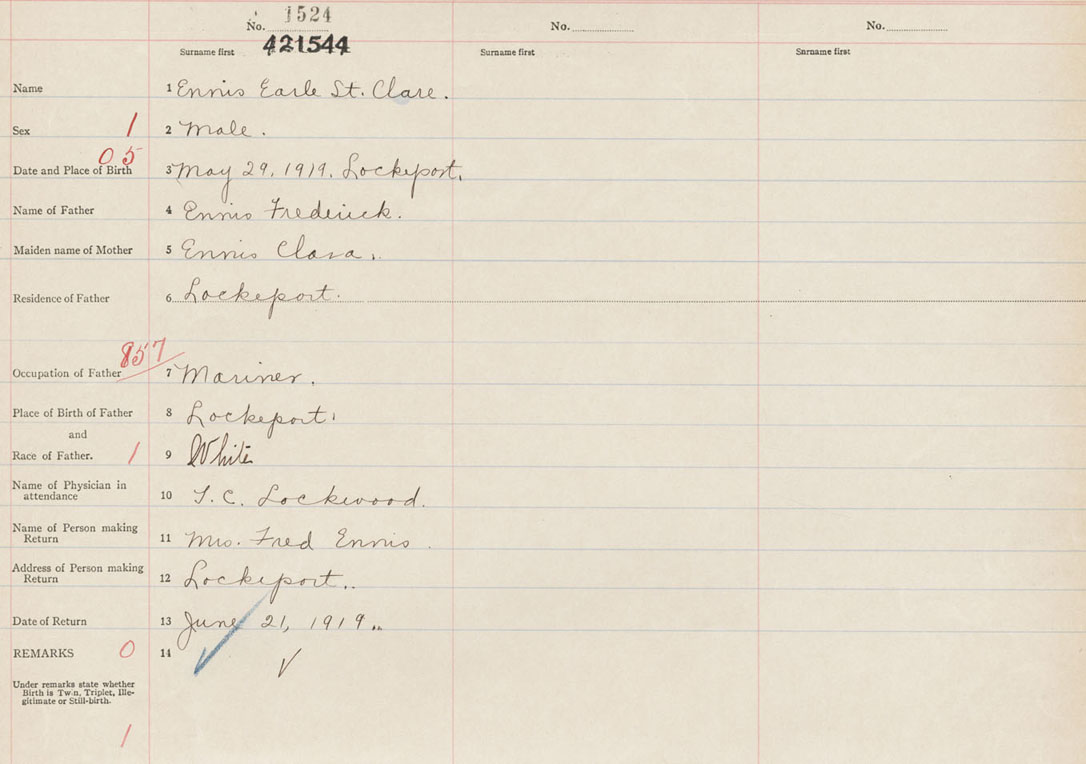 1524
No. No. No.
421544
Surname first Surname first Surname first
Name 1 Ennis Earle St. Clare.
Sex 1 2 Male.
0 5
Date and Place of Birth 3 May 29, 1919. Lockeport.
Name of Father 4 Ennis Frederick.
Maiden name of Mother 5 Ennis Clara.
Residence of Father 6 Lockeport.
857
Occupation of Father 7 Mariner.
Place of Birth of Father 8 Lockeport.
and
Race of Father. 1 9 White
Name of Physician in
attendance 10 T. C. Lockwood.
Name of Person making
Return 11 Mrs. Fred Ennis.
Address of Person making
Return 12 Lockeport..
Date of Return 13 June 21, 1919..
REMARKS 0 14
Under remarks state whether
Birth is Twin, Triplet, Ille-
gitimate or Still-birth.
1